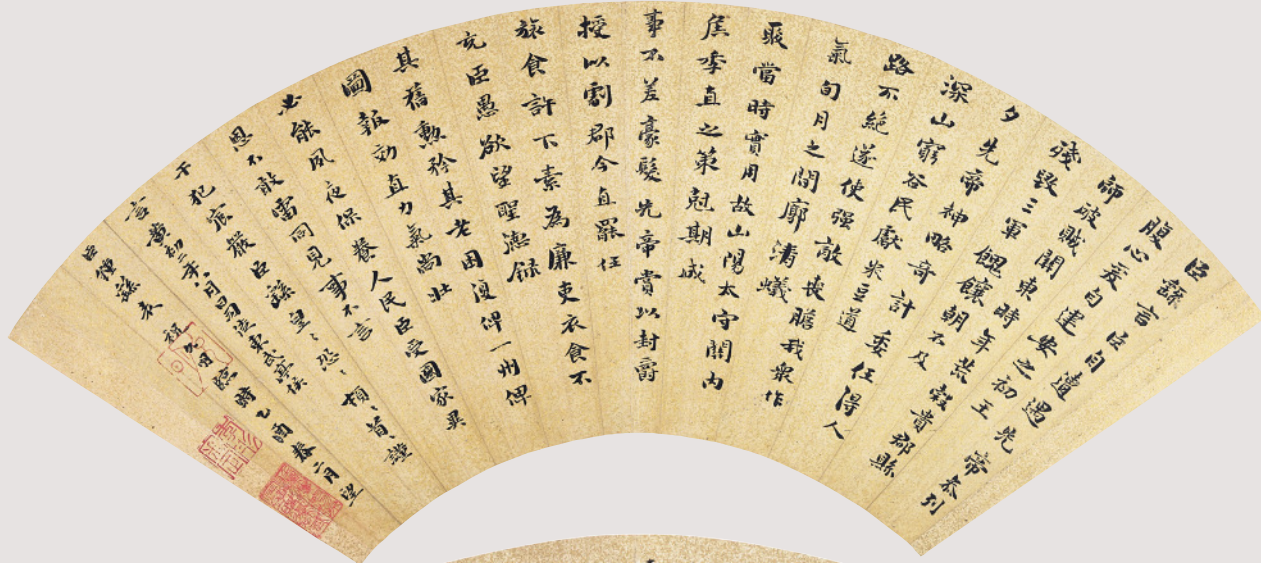 臣繇言臣自遭遇先帝忝列
腹心爰自建安之初王
師破賊關東時年荒穀貴郡縣
淺毀三軍餽饟朝不及
夕先帝神略奇計委任得人
深山窮谷民獻米豆道
路不絕遂使强敵喪膽我衆作
氣旬月之間廓清蟻
聚當時實用故山陽太守關內
侯季直之策剋期成
事不差豪髮先帝賞以封爵
授以劇郡今直罷任
旅食許下素為廉吏衣食不
充臣愚欲望聖德錄
其舊勳矜其老困復俾一州俾
圖報効直力氣尚壯
必能夙夜保養人民臣受國家異
恩不敢雷同見事不言
干犯宸嚴臣繇皇〻恐〻頓〻首謹
言黃初二年八月日司徒東武亭侯
臣鍾繇表 祝允明臨時乙酉春二月望